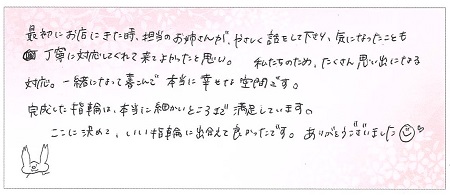 最初にお店にきた時、担当のお姉さんが、やさしく話をして下さり、気になったことも
丁寧に対応してくれて来てよかったと思い。 私たちのため、たくさん思い出になる
対応。一緒になって喜んで本当に幸せな空間です。
完成した指輪は、本当に細かいところまで満足しています。
ここに決めて、いい指輪に出会えて良かったです。ありがとうございました